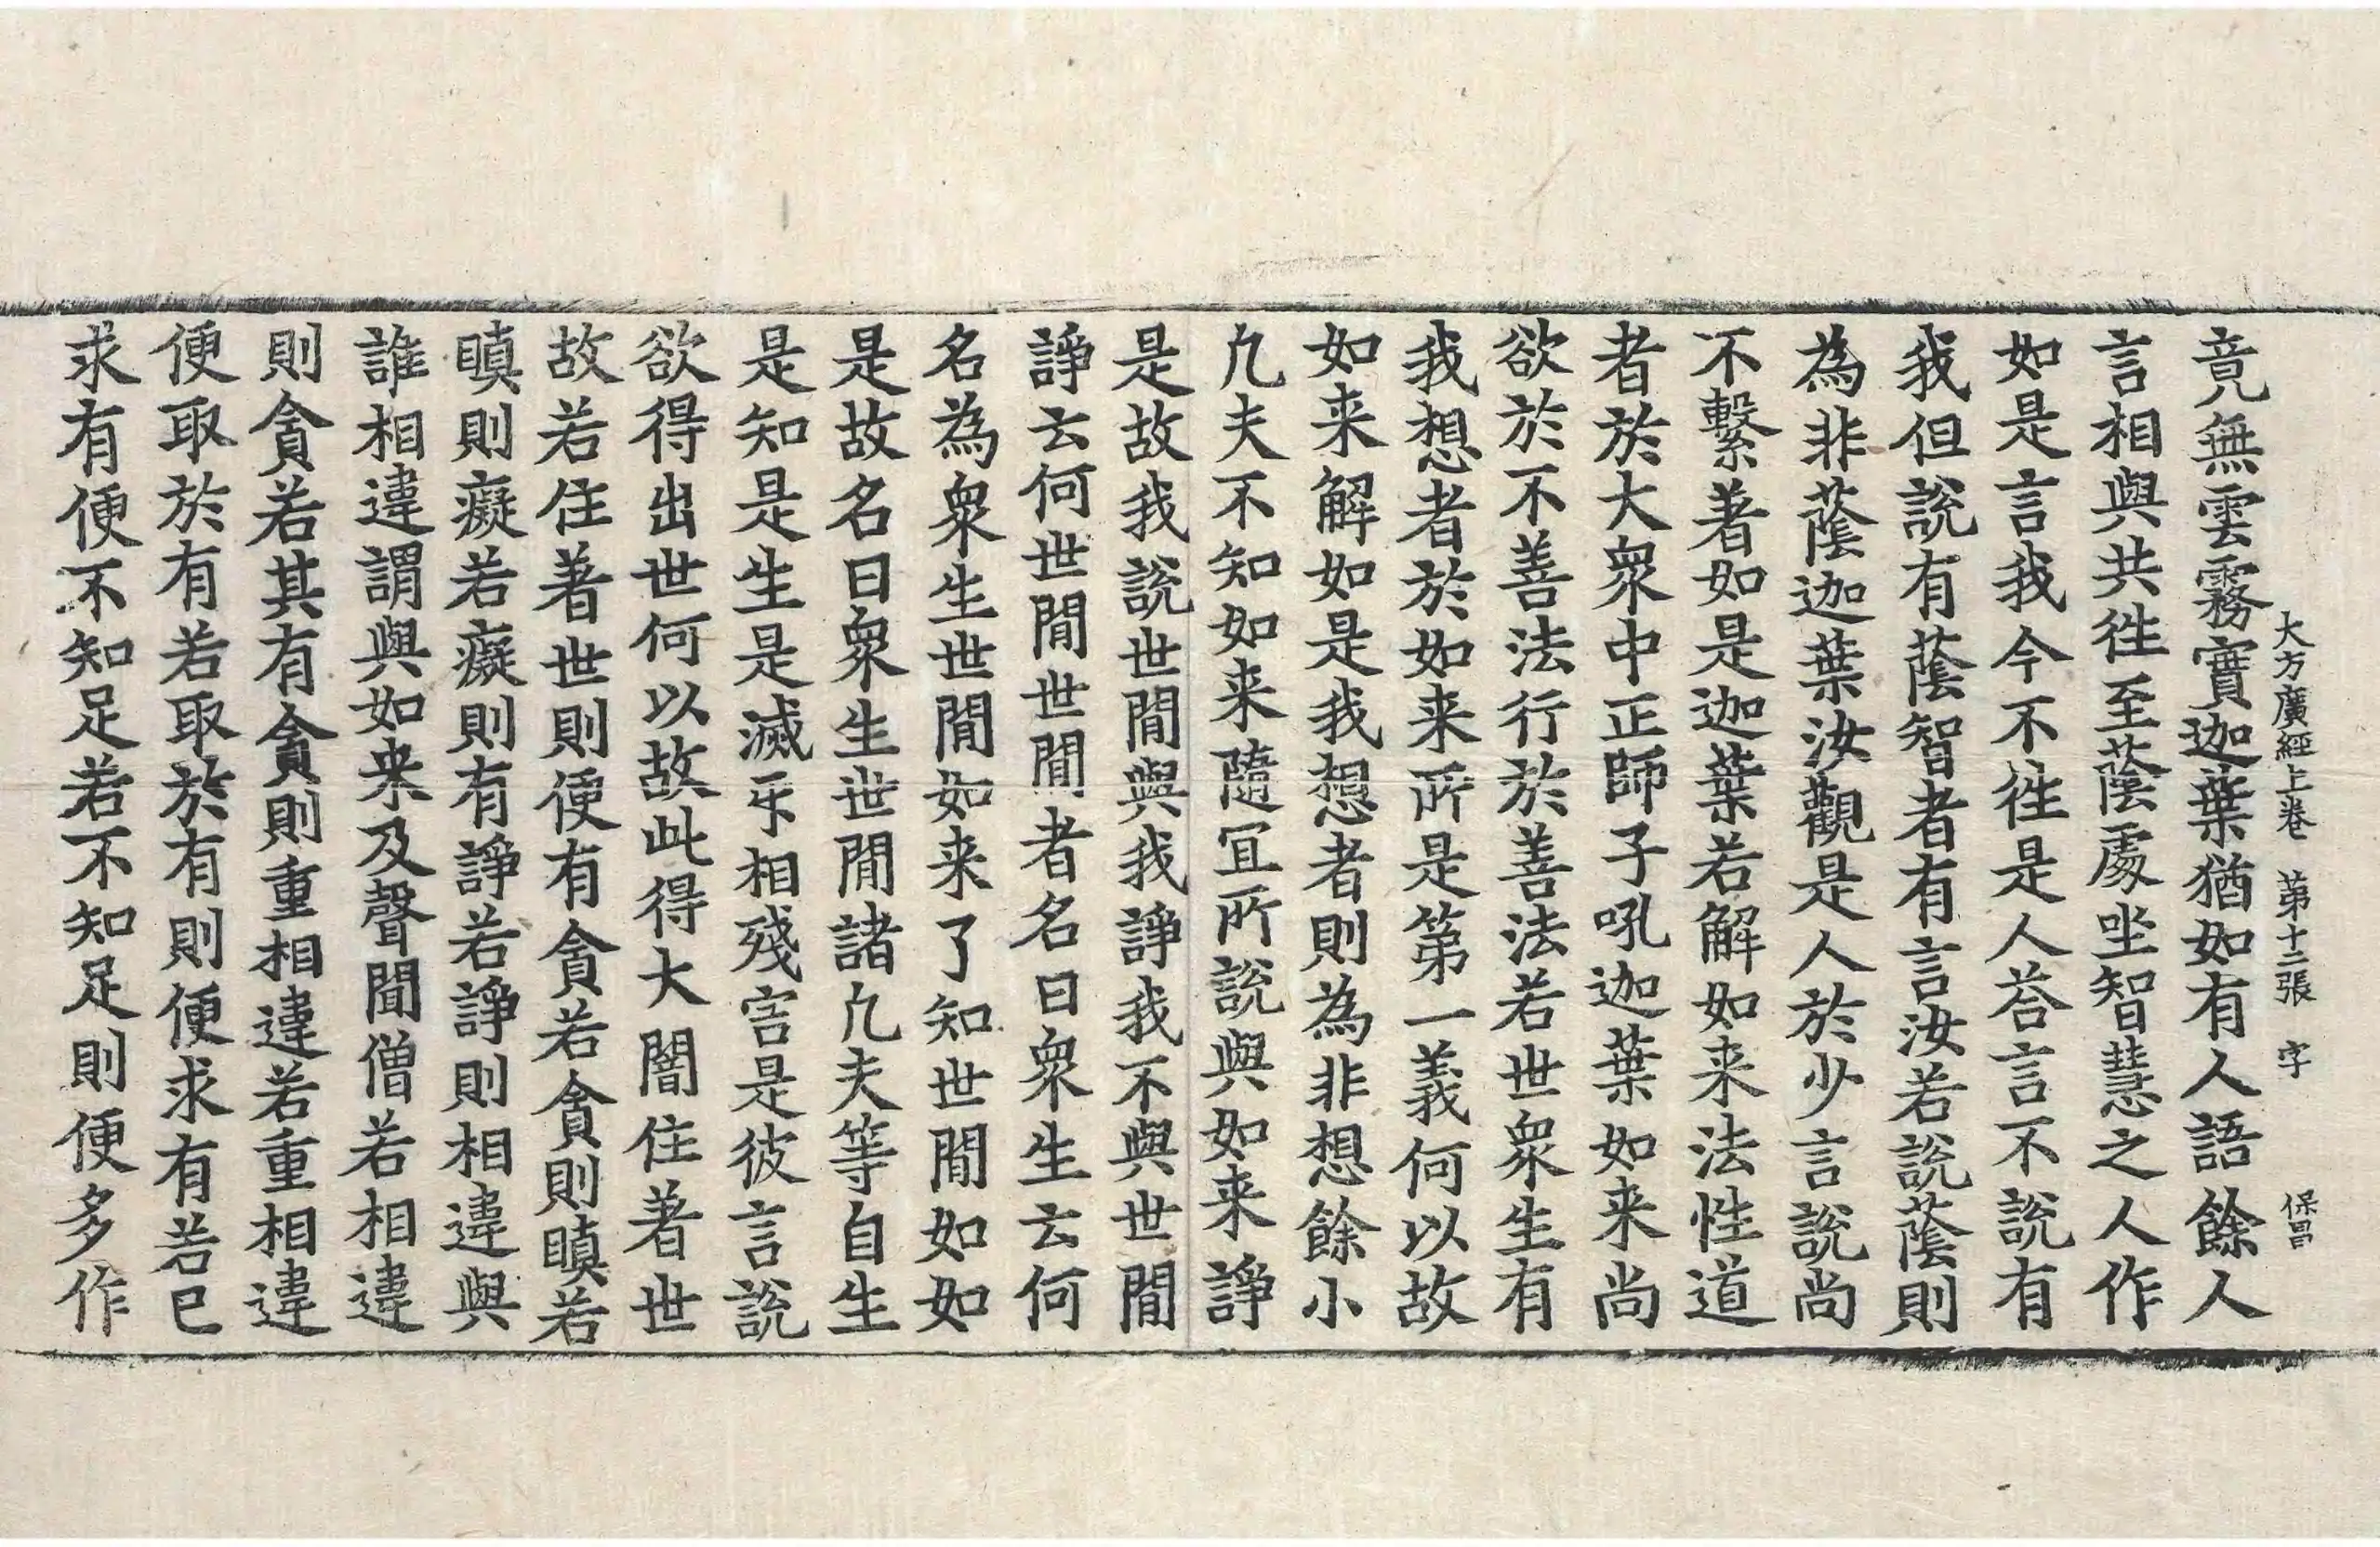 大方廣經上卷　第十二張　字　保昌
竟無雲霧實迦葉猶如有人語餘人
言相與共徃至䕃處坐智慧之人作
如是言我今不徃是人荅言不說有
我但說有䕃智者有言汝若說䕃則
為非䕃迦葉汝觀是人於少言說尚
不繫著如是迦葉若解如来法性道
者於大衆中正師子吼迦葉如来尚
欲於不善法行於善法若世衆生有
我想者於如来所是第一義何以故
如来解如是我想者則為非想餘小
凢夫不知如来隨冝所說與如来諍
是故我說世間與我諍我不與世間
諍云何世間世間者名曰衆生云何
名為衆生世間如来了知世間如如
是故名曰衆生世間諸凢夫等自生
是知是生是滅㸦相殘害是彼言說
欲得出世何以故此得大闇住著世
故若住著世則便有貪若貪則瞋若
瞋則癡若癡則有諍若諍則相違與
誰相違謂與如来及聲聞僧若相違
則貪若其有貪則重相違若重相違
便取於有若取於有則便求有若已
求有便不知足若不知足則便多作